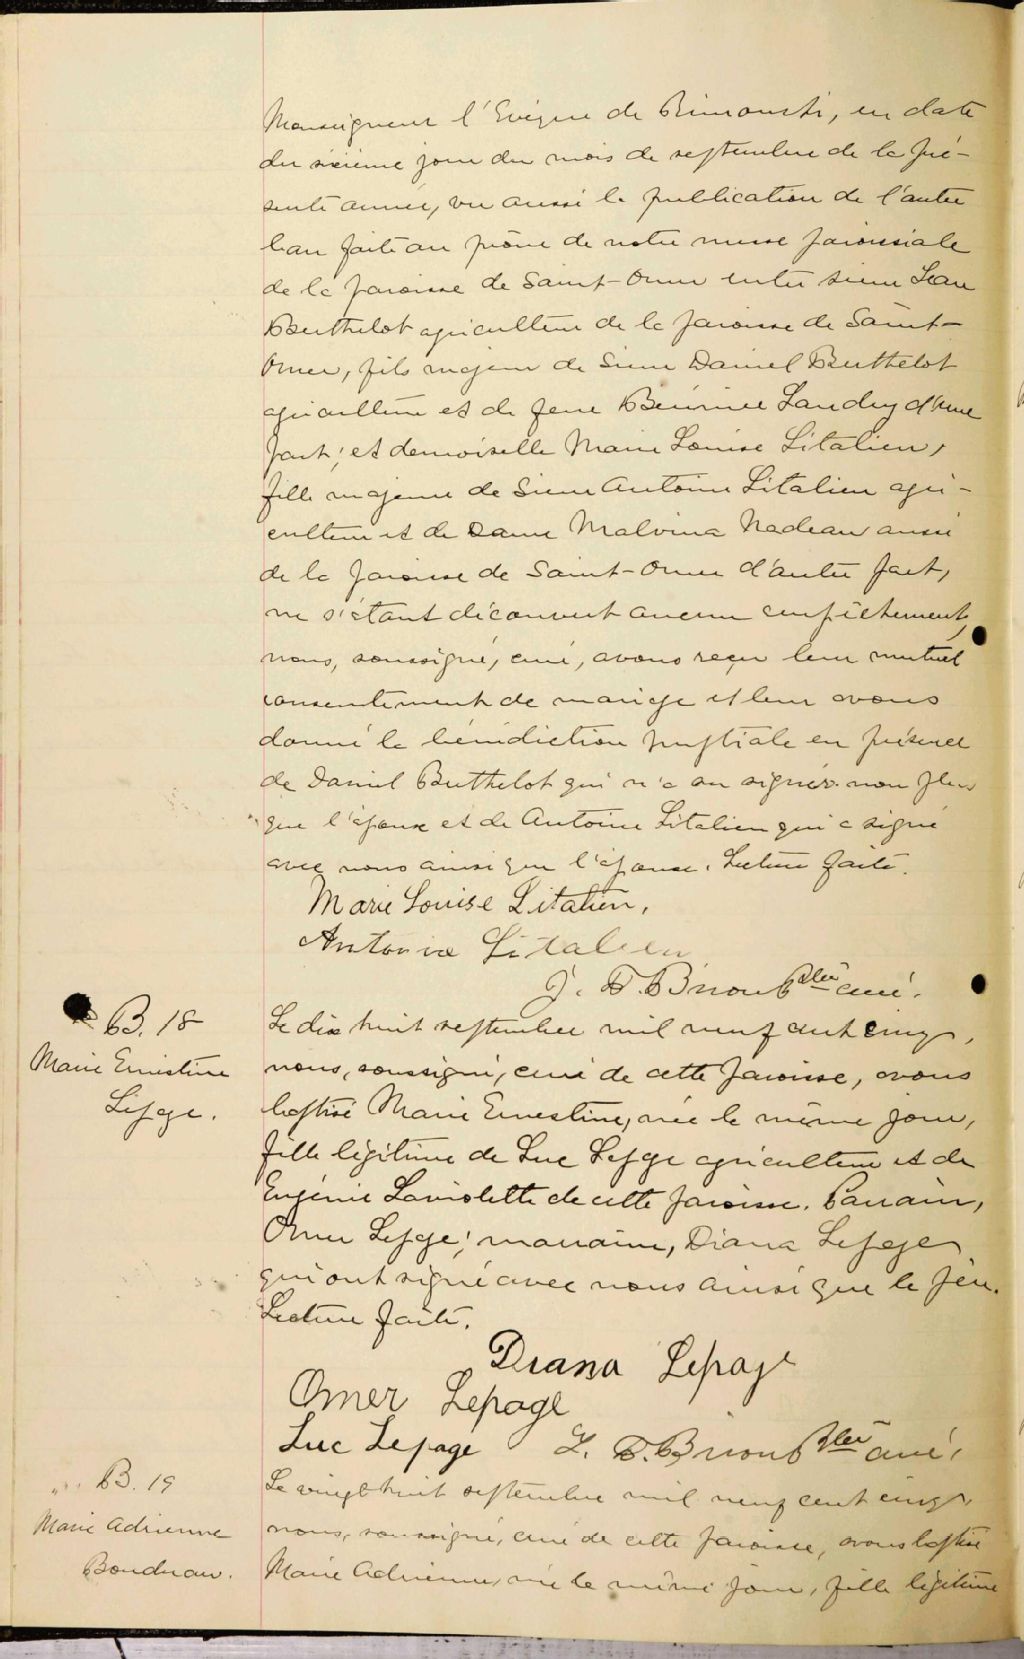 Monseigneur l'Evêque de Rimouski, en date
du sixième jour du mois de septembre de la pré-
sente année, vu aussi la publication de l'autre
ban faite au prône de notre messe paroissiale
de la paroisse de Saint-Omer entre sieur Jean
Berthelot agriculteur de la paroisse de Saint-
Omer, fils majeur de Sieur Daniel Berthelot
agriculteur et de feue Landry d'une
part; et demoiselle Marie Louise Litalien,
fille majeure de Sieur Antoine Litalien agri-
culteur et de Dame Malvina Nadeau aussi
de la paroisse de Saint-Omer d'autre part,
ne s'étant découvert aucun empêchement,
nous, soussigné, curé, avons reçu leur mutuel
consentement de mariage et leur avons
donné la bénédiction nuptiale en présence
de Daniel Berthelot qui n'a su signer non plus
que l'époux et de Antoine Litalien qui a signé
avec nous ainsi que l'épouse. Lecture faite.
Marie Louise Litalien,
Antoine Litalien
J. D. Brioux Ptre curé.
B. 18
Marie Ernestine
Lepage.
Le dix huit septembre mil neuf cent cinq,
nous, soussigné, curé de cette paroisse, avons
baptisé Marie Ernestine, née le même jour,
fille légitime de Luc Lepage agriculteur et de
Eugénie Laviolette de cette paroisse. Parrain,
Omer Lepage; marraine, Diana Lepage
qui ont signé avec nous ainsi que le père.
Lecture faite.
Diana Lepage
Omer Lepage
Luc Lepage J. D. Brioux Ptre curé,
B. 19
Marie Adrienne
Boudreau.
Le vingt huit septembre mil neuf cent cinq,
nous, soussigné, curé de cette paroisse, avons baptisé
Marie Adrienne, née le même jour, fille légitime